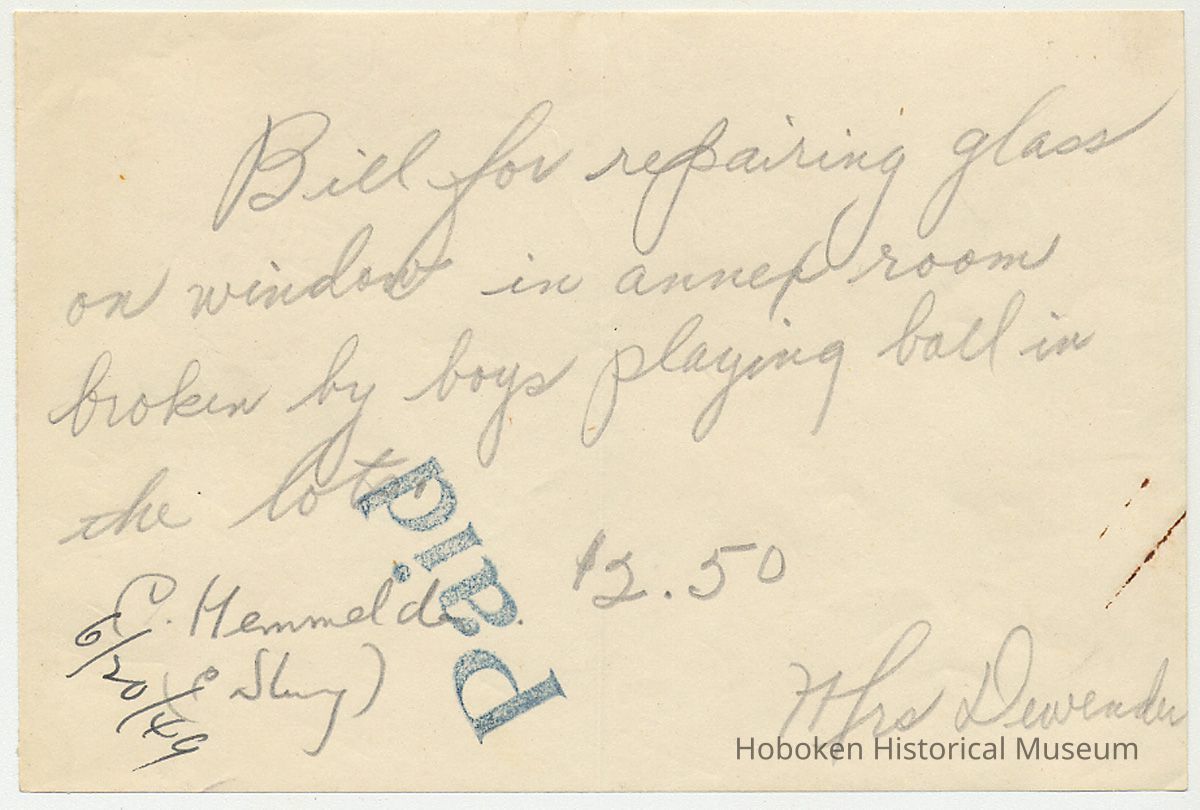 Bill for repairing glass
on window in annex room
broken by boys playing ball in
the lot.
Paid
$2.50
C. Hemmelde
6/20/49
Mrs Dewender
Hoboken Historical Museum